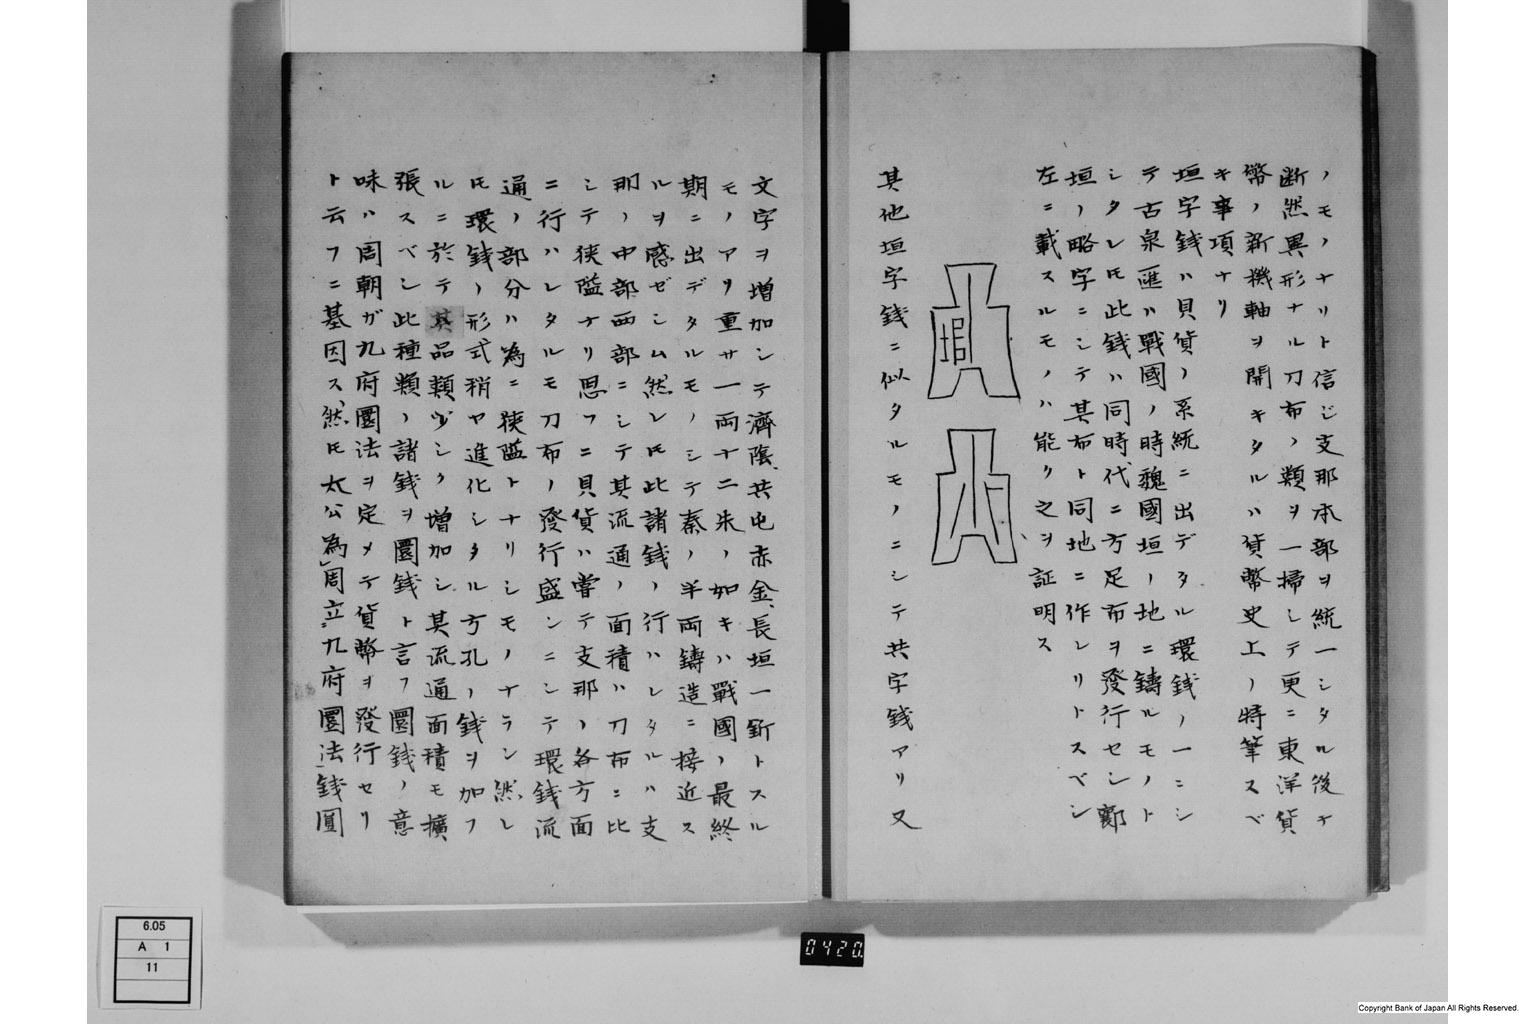 ノモノナリト信ジ支那本部ヲ統一シタル後チ
断然異形ナル刀布ノ類ヲ一掃シテ更ニ東洋貨
幣ノ新機軸ヲ開キタルハ貨幣史上ノ特筆スベ
キ事項ナリ
垣字銭ハ貝貨ノ系統ニ出デタル環銭ノ一ニシ
テ古泉匯ハ戰國ノ時魏國垣ノ地ニ鑄ルモノト
シタレ𪜈此銭ハ同時代ニ方足布ヲ發行セシ鄭
垣ノ略字ニシテ其布ト同地ニ作レリトスベシ
左ニ載スルモノハ能ク之ヲ証明ス
其他垣字銭ニ似タルモノニシテ共字銭アリ又
文字ヲ増加シテ濟陰、共屯赤金、長垣一釿トスル
モノアリ重サ一両十二朱ノ如キハ戰國ノ最終
期ニ出デタルモノシテ秦ノ半両鑄造ニ接近ス
ルヲ感ゼシム然レ𪜈此諸銭ノ行ハレタルハ支
那ノ中部西部ニシテ其流通ノ面積ハ刀布ニ比
シテ狭隘ナリ思フニ貝貨ハ嘗テ支那ノ各方面
ニ行ハレタルモ刀布ノ發行盛ンニシテ環銭流
通ノ部分ハ為ニ狭隘トナリシモノナラン然レ
𪜈環銭ノ形式稍ヤ進化シタル方孔ノ銭ヲ加フ
ルニ於テ其品類少シク増加シ其流通面積モ擴
張スベシ此種類ノ諸銭ヲ圜銭ト言フ圜銭ノ意
味ハ周朝ガ九府圜法ヲ定メテ貨幣ヲ發行セリ
ト云フニ基因ス、然𪜈太公為「周立」九府圜法「銭圓
6.05
A 1
11
0420
Copyright Bank of Japan All Rights Reserved.